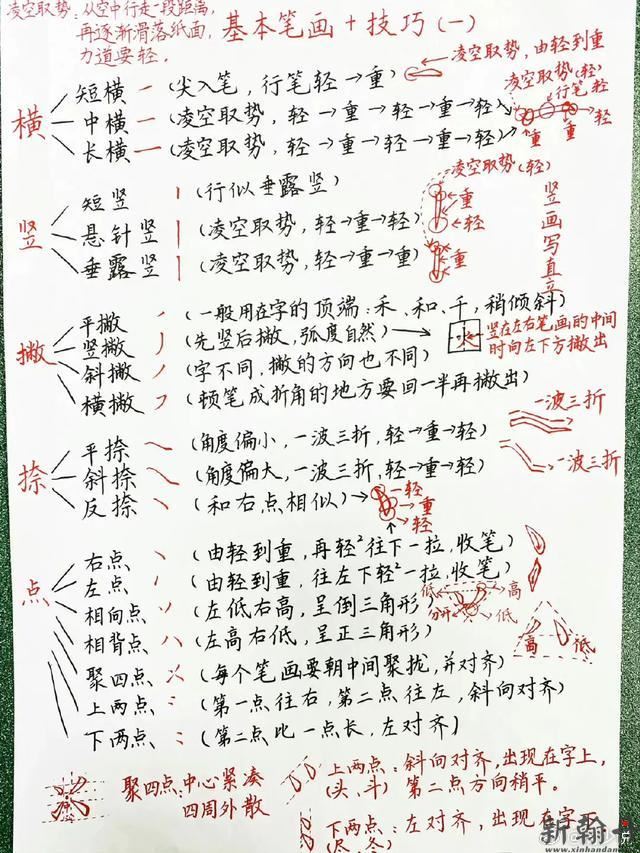 凌空取势：从空中行走一段距离，
再逐渐滑落纸面，
力道要轻．
基本笔画＋技巧（一）
横
短横 一（尖入笔，行笔轻→重）
凌空取势，由轻到重
中横 一（凌空取势，轻→重→轻→重→轻）
长横 一（凌空取势，轻→重→轻→重→轻）
凌空取势（轻）
行笔，轻
轻
重 重
竖
短竖 丨（行似垂露竖）
悬针竖 丨（凌空取势，轻→重→轻）
垂露竖 丨（凌空取势，轻→重→重）
凌空取势（轻）
重
轻
重
竖画写直立
撇
平撇（一般用在字的顶端：禾、和、千，稍倾斜）
竖撇 丿（先竖后撇，弧度自然）
斜撇 丿（字不同，撇的方向也不同）
横撇 フ（顿笔成折角的地方要回一半再撇出）
竖在左右笔画的中间
时向左下方撇出
捺
平捺（角度偏小，一波三折，轻→重→轻）
斜捺（角度偏大，一波三折，轻→重→轻）
反捺（和右点相似）
轻
重
轻
一波三折
一波三折
点
右点（由轻到重，再轻²往下一拉，收笔）
左点（由轻到重，往左下轻²一拉，收笔）
相向点（左低右高，呈倒三角形）
相背点（左高右低，呈正三角形）
聚四点（每个笔画要朝中间聚拢，并对齐）
上两点（第一点往右，第二点往左，斜向对齐）
下两点（第二点比一点长，左对齐）
低 高
分开 低
高 低
聚四点：中心紧凑
四周外散
上两点：斜向对齐，出现在字上，
（头、斗）第二点方向稍平．
下两点：左对齐，出现在字下
（尽、冬）
新翰
www.xinhandan